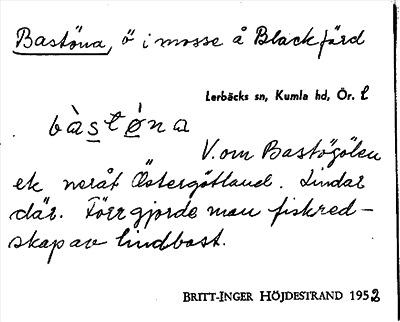 Bastöna, ö i mosse å Black fjärd
Lerbäcks sn, Kumla hd, Ör. l
bàstǿna
V. om Bastögölen
ek neråt Östergötland. Lindar
där. Förr gjorde man fiskred-
skap av lindbast.
BRITT-INGER HÖJDESTRAND 1952